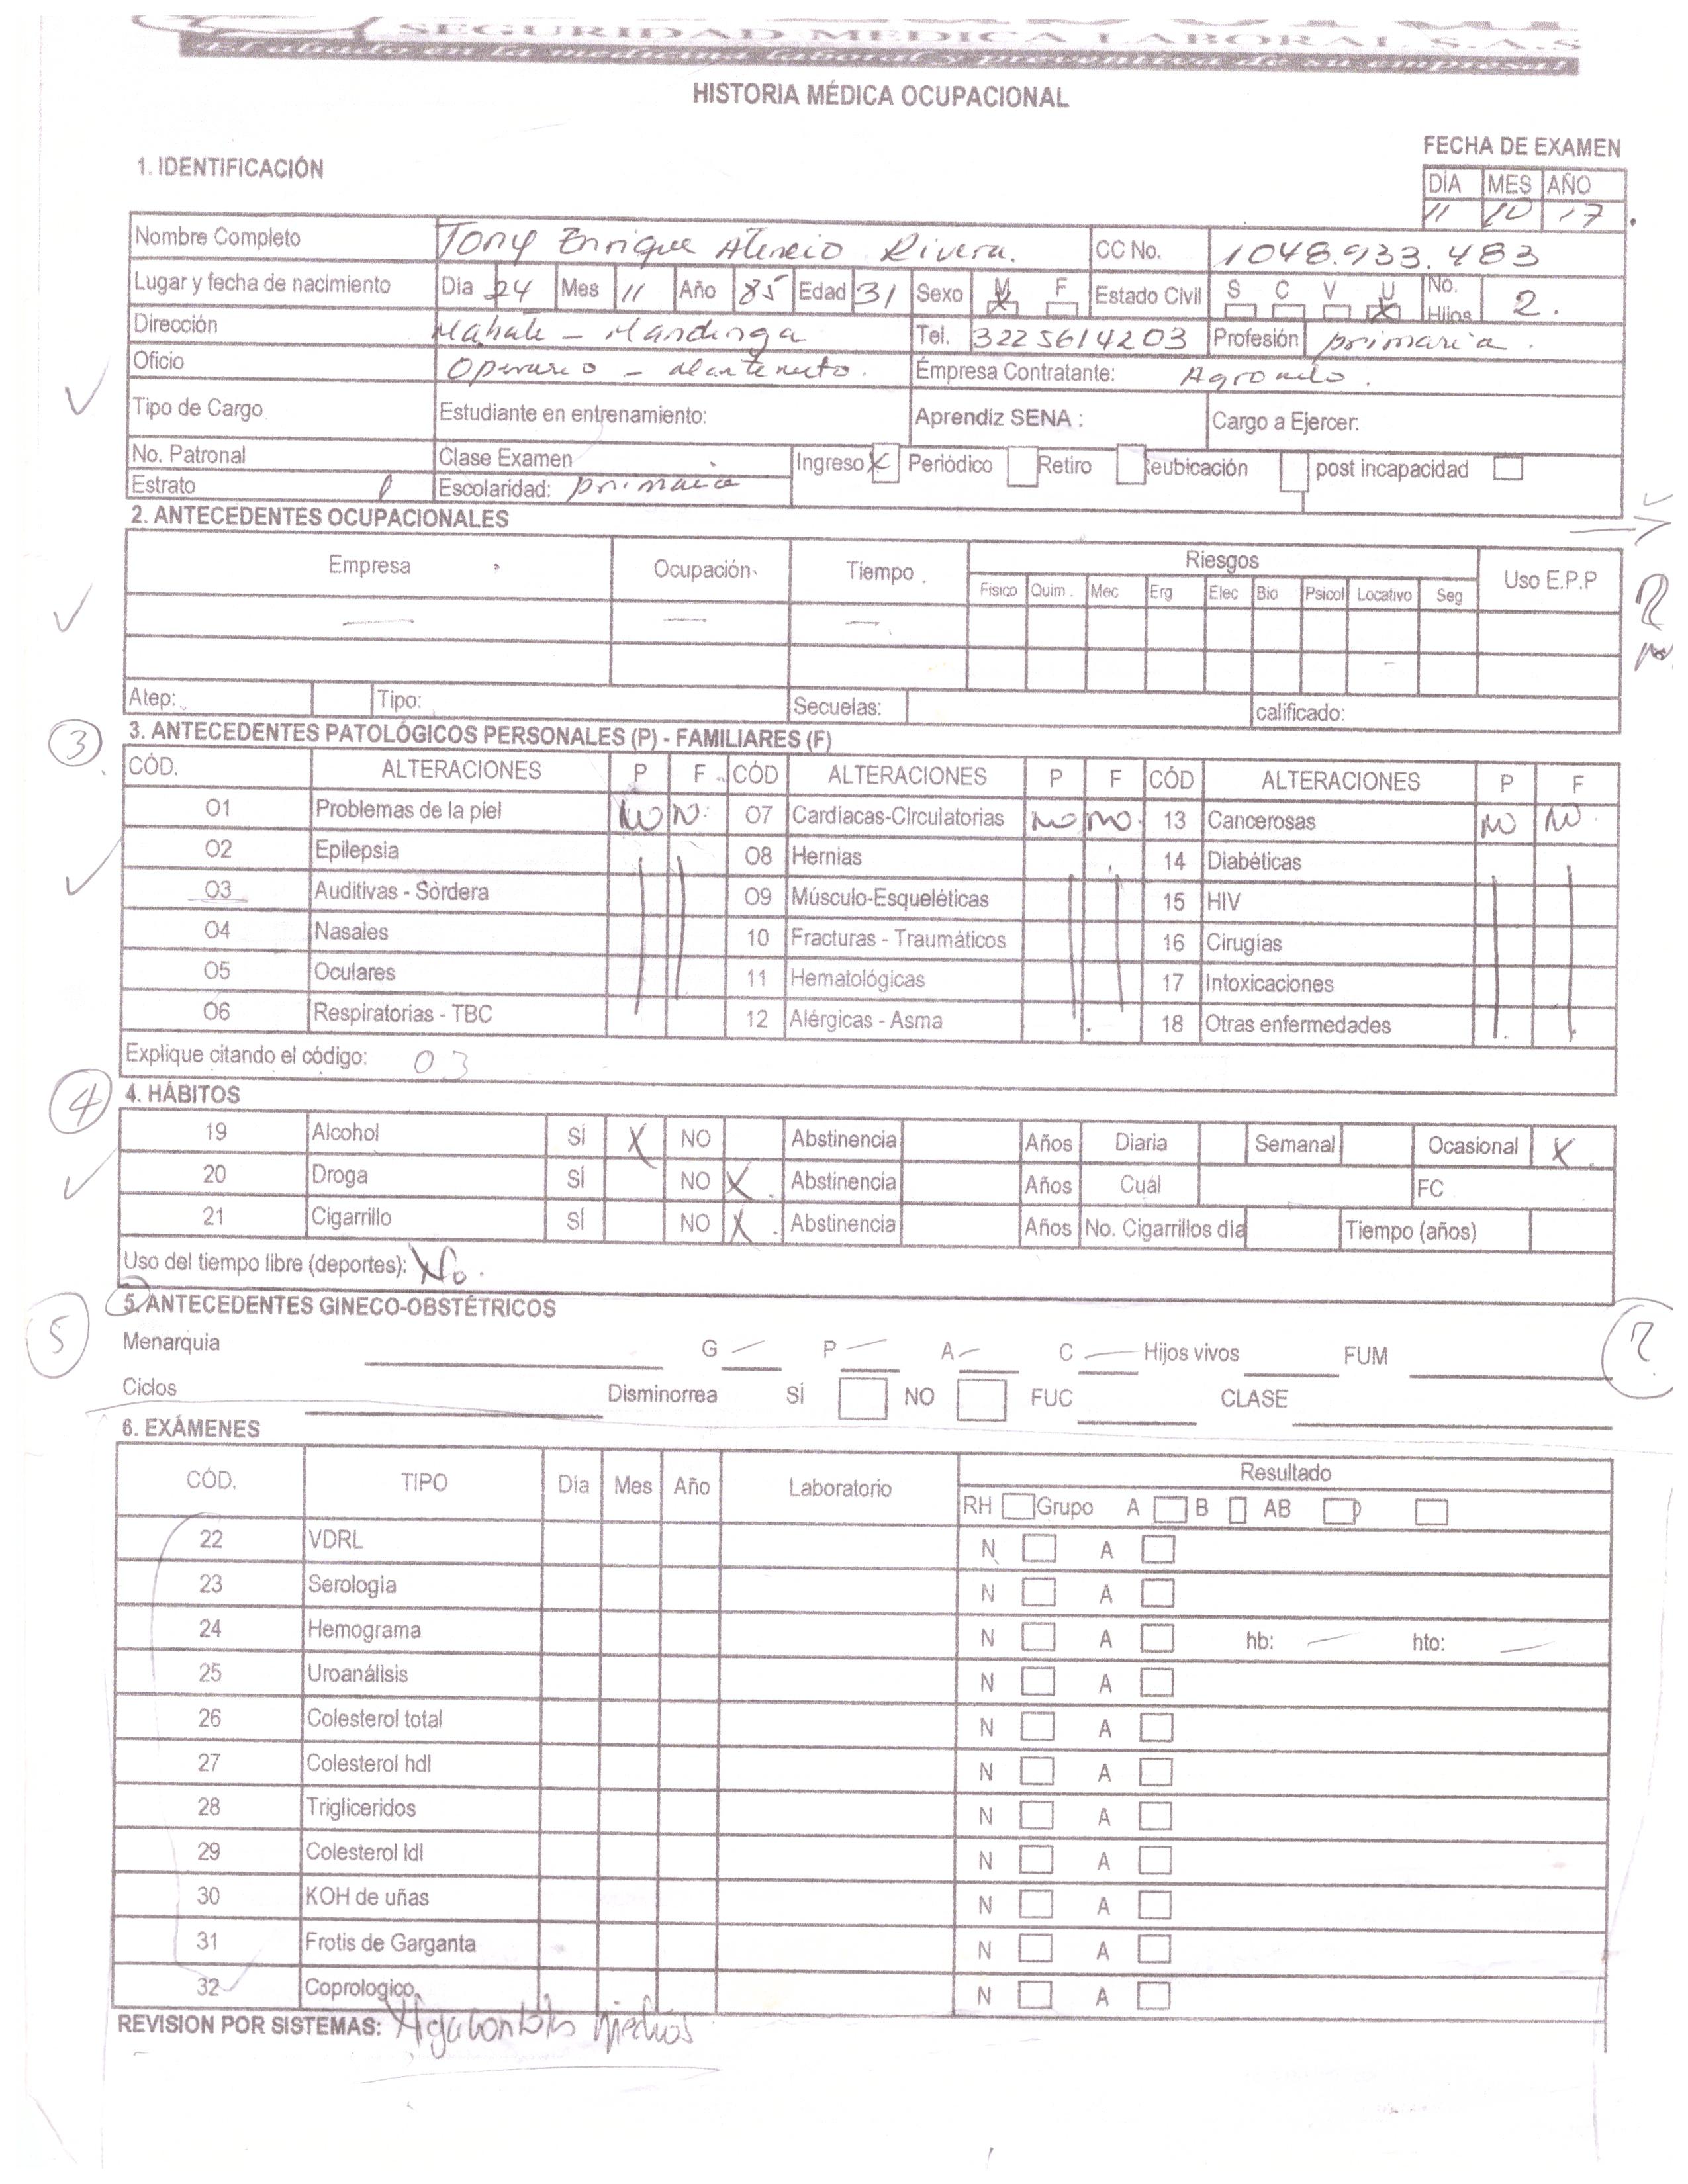 SEGURIDAD MEDICA LABORAL S.A.S
El aliado en la medicina laboral y preventiva de su empresa!
HISTORIA MÉDICA OCUPACIONAL
FECHA DE EXAMEN
1. IDENTIFICACIÓN
DÍA MES AÑO
11 10 17
Nombre Completo Tony Enrique Atencio Rivera. CC No. 1048.933.483
Lugar y fecha de nacimiento Dia 24 Mes 11 Año 85 Edad 31 Sexo M X F Estado Civil S C V U X No. Hijos 2.
Dirección Mahate - Mandinga Tel. 3225614203 Profesión primaria.
Oficio Operario - Empresa Contratante:
Tipo de Cargo Estudiante en entrenamiento: Aprendiz SENA : Cargo a Ejercer:
No. Patronal Clase Examen Ingreso X Periódico Retiro Reubicación post incapacidad
Estrato 1 Escolaridad: primaria
2. ANTECEDENTES OCUPACIONALES
Empresa Ocupación Tiempo Riesgos Uso E.P.P
Fisico Quim. Mec Erg Elec Bio Psicol Locativo Seg
— — —
Atep: Tipo: Secuelas: calificado:
3 3. ANTECEDENTES PATOLÓGICOS PERSONALES (P) - FAMILIARES (F)
CÓD. ALTERACIONES P F CÓD ALTERACIONES P F CÓD ALTERACIONES P F
O1 Problemas de la piel NO NO O7 Cardíacas-Circulatorias NO NO 13 Cancerosas NO NO
O2 Epilepsia O8 Hernias 14 Diabéticas
O3 Auditivas - Sordera O9 Músculo-Esqueléticas 15 HIV
O4 Nasales 10 Fracturas - Traumáticos 16 Cirugías
O5 Oculares 11 Hematológicas 17 Intoxicaciones
O6 Respiratorias - TBC 12 Alérgicas - Asma 18 Otras enfermedades
Explique citando el código: 03
4 4. HÁBITOS
19 Alcohol SÍ X NO Abstinencia Años Diaria Semanal Ocasional X
20 Droga SÍ NO X Abstinencia Años Cuál FC
21 Cigarrillo SÍ NO X Abstinencia Años No. Cigarrillos día Tiempo (años)
Uso del tiempo libre (deportes): No.
5 5. ANTECEDENTES GINECO-OBSTÉTRICOS ?
Menarquia G — P — A — C — Hijos vivos FUM
Ciclos Disminorrea SÍ NO FUC CLASE
6. EXÁMENES
CÓD. TIPO Día Mes Año Laboratorio Resultado
RH Grupo A B AB O
22 VDRL N A
23 Serologia N A
24 Hemograma N A hb: — hto: —
25 Uroanálisis N A
26 Colesterol total N A
27 Colesterol hdl N A
28 Trigliceridos N A
29 Colesterol ldl N A
30 KOH de uñas N A
31 Frotis de Garganta N A
32 Coprologico N A
REVISION POR SISTEMAS: